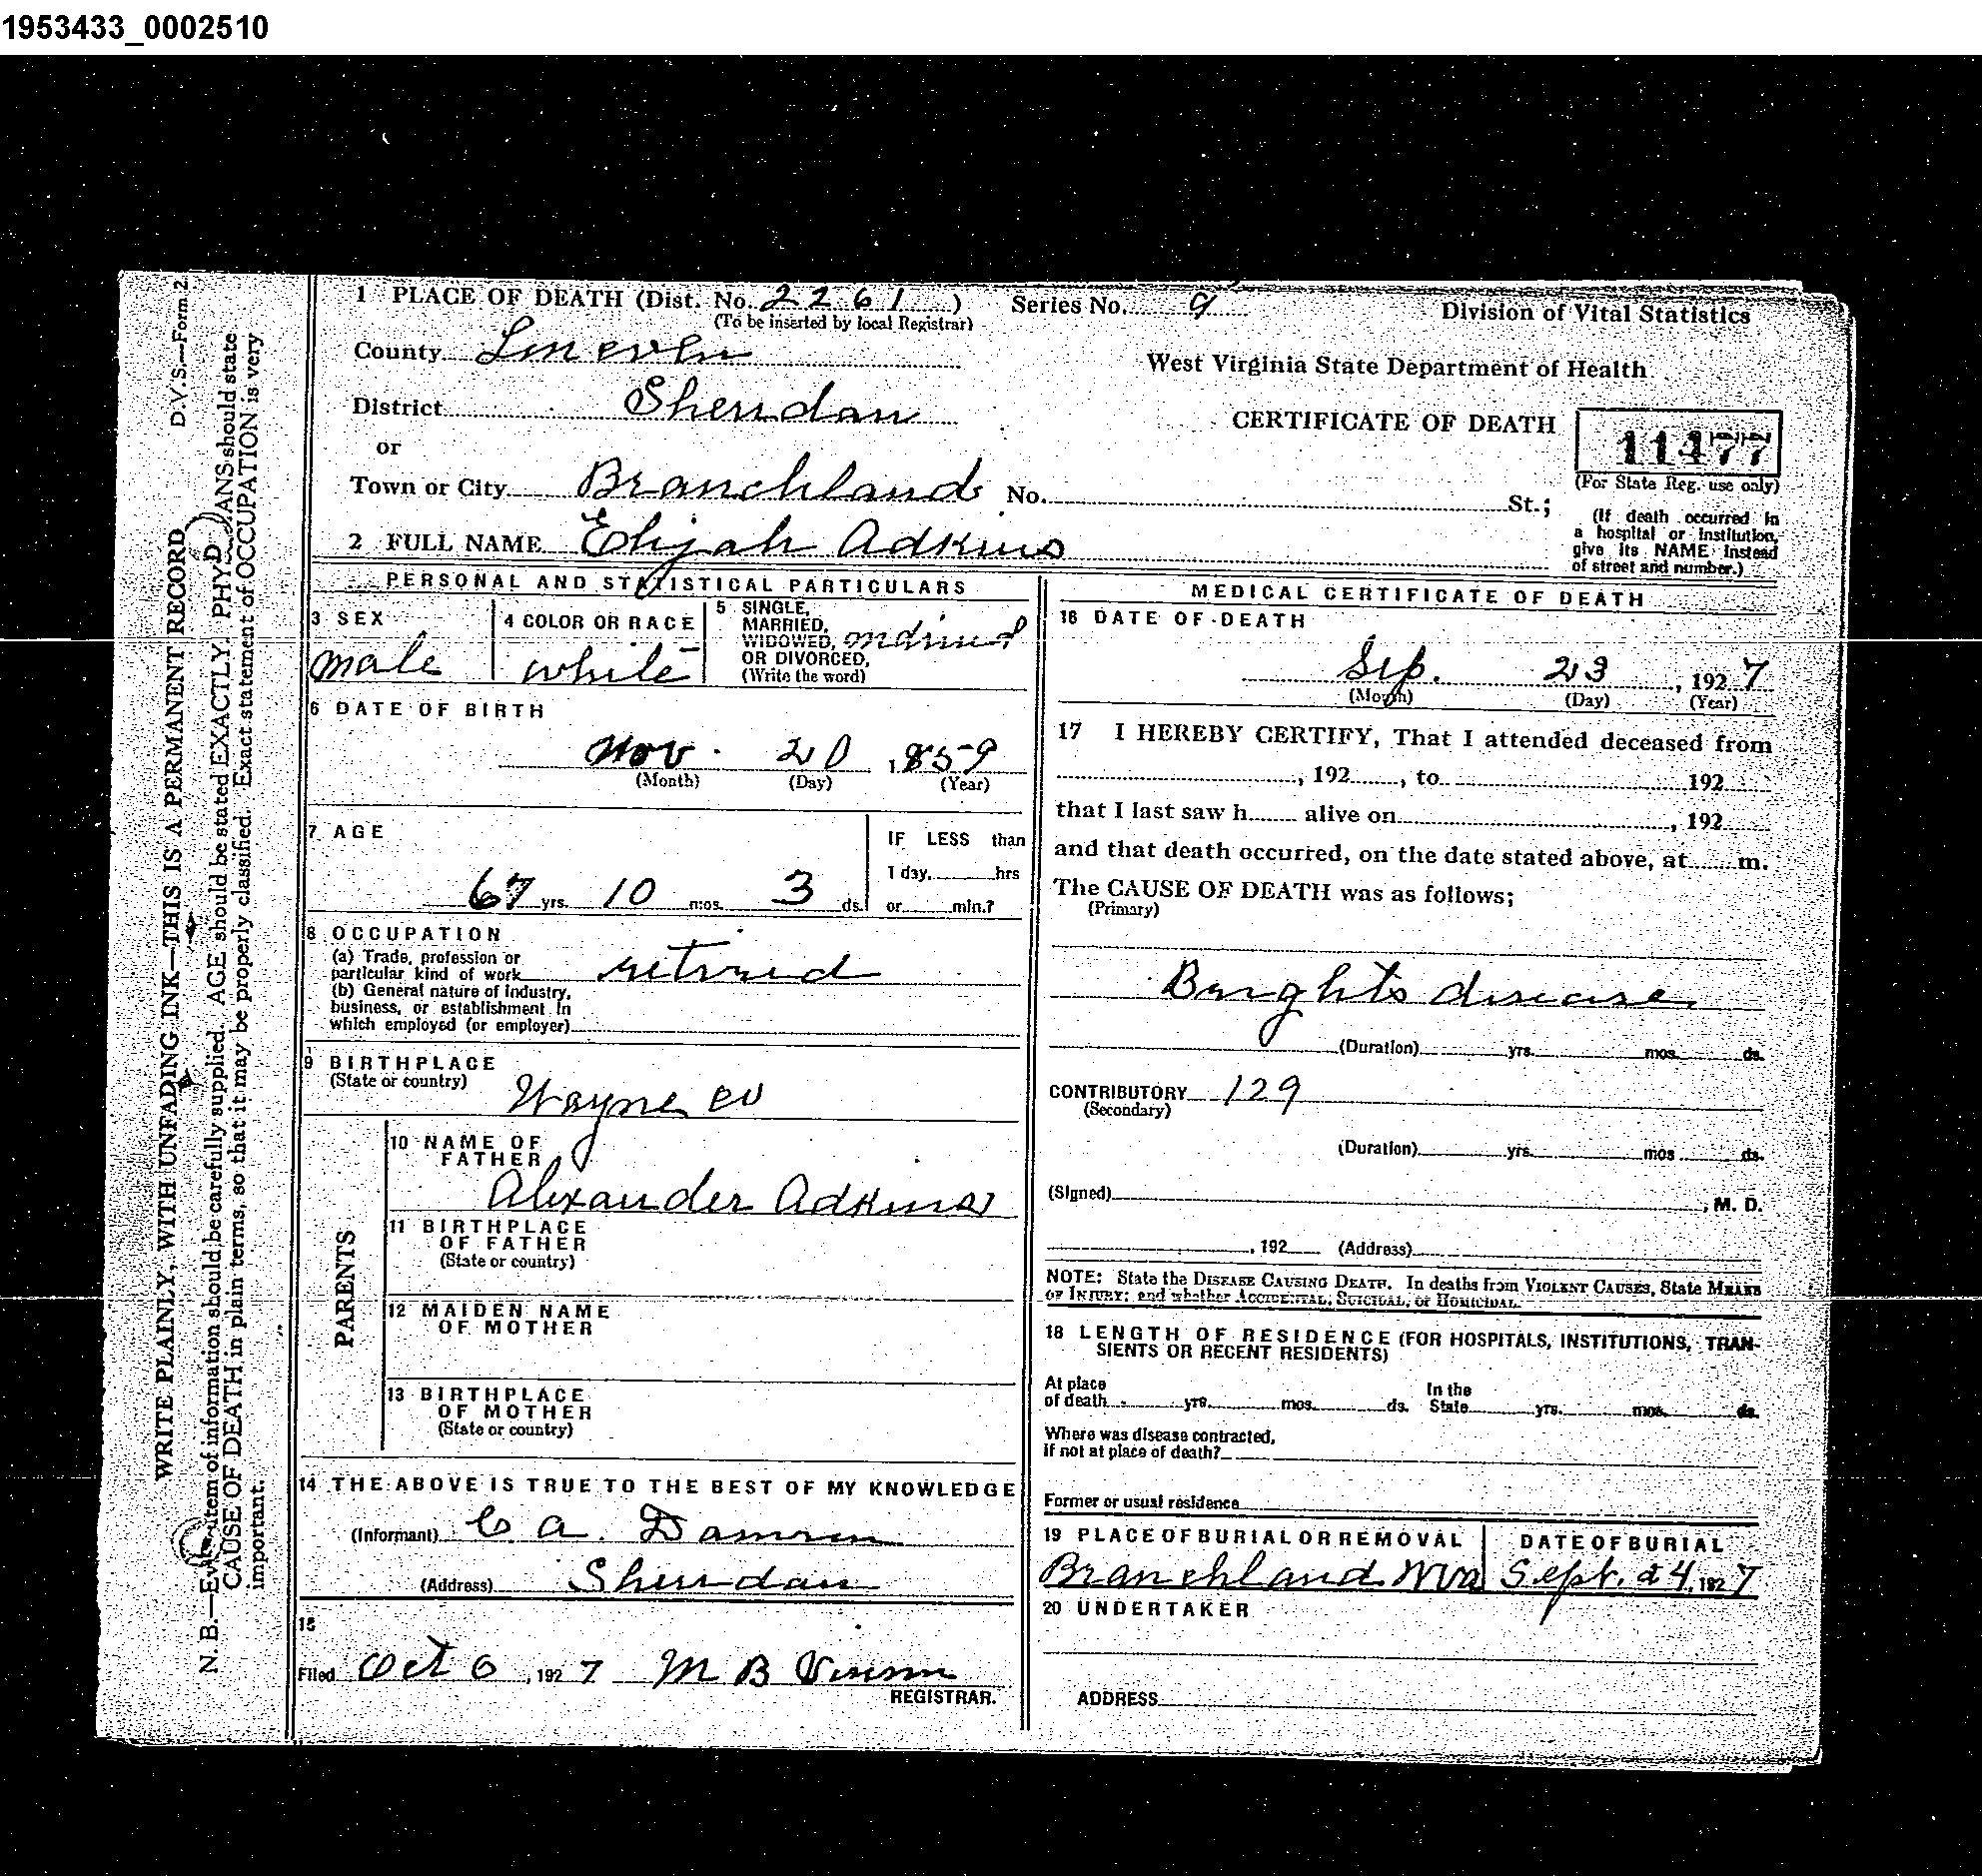 1953433_0002510
D.V.S.—Form 2.
WRITE PLAINLY, WITH UNFADING INK—THIS IS A PERMANENT RECORD
N. B.—Every item of information should be carefully supplied. AGE should be stated EXACTLY. PHYSICIANS should state
CAUSE OF DEATH in plain terms, so that it may be properly classified. Exact statement of OCCUPATION is very
important.
1 PLACE OF DEATH (Dist. No. 2261) Series No. 9 Division of Vital Statistics
(To be inserted by local Registrar)
County Lincoln
West Virginia State Department of Health
District Sheridan
CERTIFICATE OF DEATH 11477
or
(For State Reg. use only)
Town or City Branchland No. St.;
(If death occurred in
a hospital or institution,
give its NAME instead
of street and number.)
2 FULL NAME Elijah Adkins
PERSONAL AND STATISTICAL PARTICULARS
3 SEX
male
4 COLOR OR RACE
white
5 SINGLE,
MARRIED,
WIDOWED,
OR DIVORCED,
(Write the word)
6 DATE OF BIRTH
Nov. 20 1859
(Month) (Day) (Year)
7 AGE
67 yrs. 10 mos. 3 ds.
IF LESS than
1 day, hrs
or min.?
8 OCCUPATION
(a) Trade, profession or
particular kind of work retired
(b) General nature of industry,
business, or establishment in
which employed (or employer)
9 BIRTHPLACE
(State or country) Wayne co
PARENTS
10 NAME OF
FATHER
Alexander Adkins
11 BIRTHPLACE
OF FATHER
(State or country)
12 MAIDEN NAME
OF MOTHER
13 BIRTHPLACE
OF MOTHER
(State or country)
14 THE ABOVE IS TRUE TO THE BEST OF MY KNOWLEDGE
(Informant) C A. Damron
(Address) Sheridan
15
Filed Oct 6, 1927 M B Vinson
REGISTRAR.
MEDICAL CERTIFICATE OF DEATH
16 DATE OF DEATH
Sep. 23, 1927
(Month) (Day) (Year)
17 I HEREBY CERTIFY, That I attended deceased from
, 192 , to 192
that I last saw h alive on , 192
and that death occurred, on the date stated above, at m.
The CAUSE OF DEATH was as follows;
(Primary)
Brights disease
(Duration) yrs. mos. ds.
CONTRIBUTORY 129
(Secondary)
(Duration) yrs. mos ds.
(Signed) , M. D.
, 192 (Address)
NOTE: State the DISEASE CAUSING DEATH. In deaths from VIOLENT CAUSES, State MEANS
OF INJURY; and whether ACCIDENTAL, SUICIDAL, or HOMICIDAL.
18 LENGTH OF RESIDENCE (FOR HOSPITALS, INSTITUTIONS, TRAN-
SIENTS OR RECENT RESIDENTS)
At place
of death yrs. mos. ds.
In the
State yrs. mos. ds.
Where was disease contracted,
if not at place of death?
Former or usual residence
19 PLACE OF BURIAL OR REMOVAL
Branchland Wva
DATE OF BURIAL
Sept. 24, 1927
20 UNDERTAKER
ADDRESS